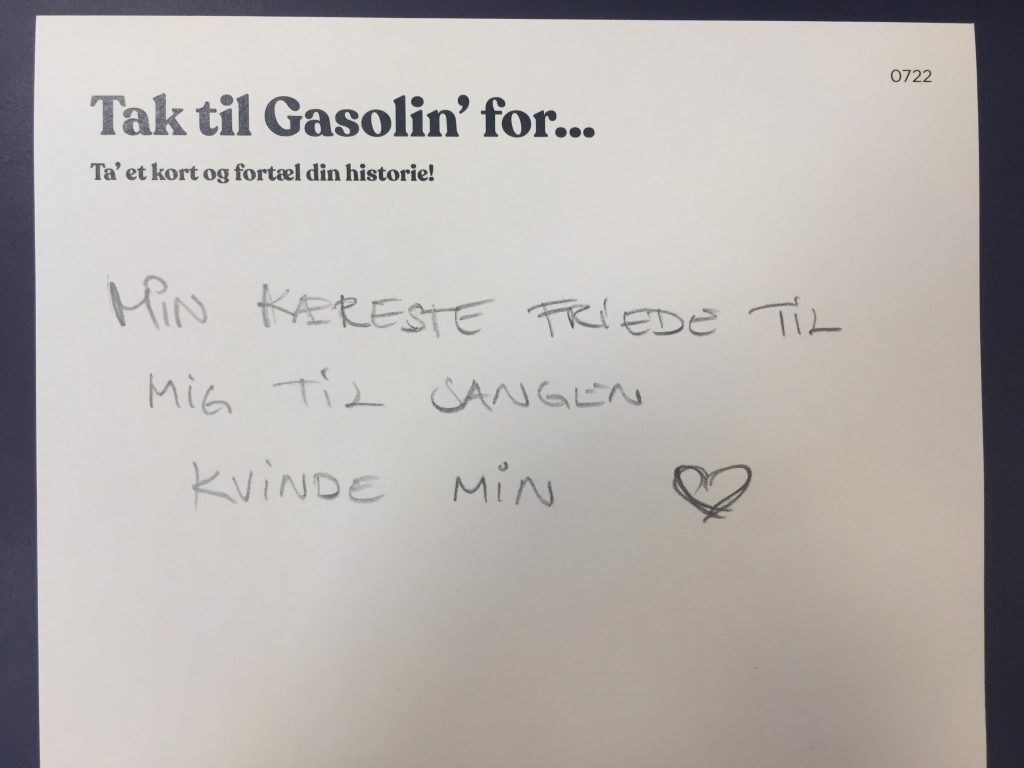 0722
Tak til Gasolin' for...
Ta' et kort og fortæl din historie!
MiN KÆRESTE FRiEDE TiL
MiG TiL SANGEN
KViNDE MiN